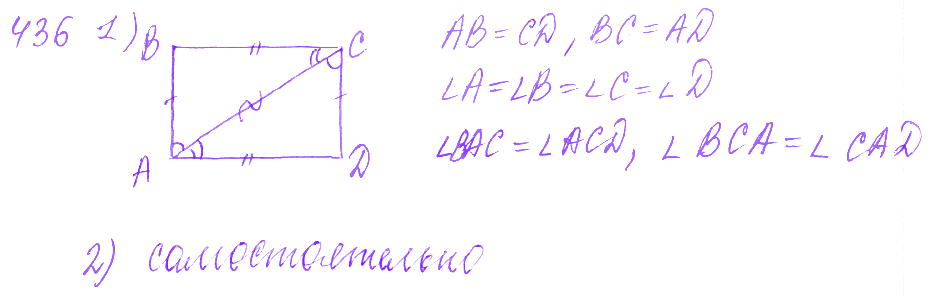 436 1)
B C
A D
AB = CD, BC = AD
∠A = ∠B = ∠C = ∠D
∠BAC = ∠ACD, ∠BCA = ∠CAD
2) самостоятельно